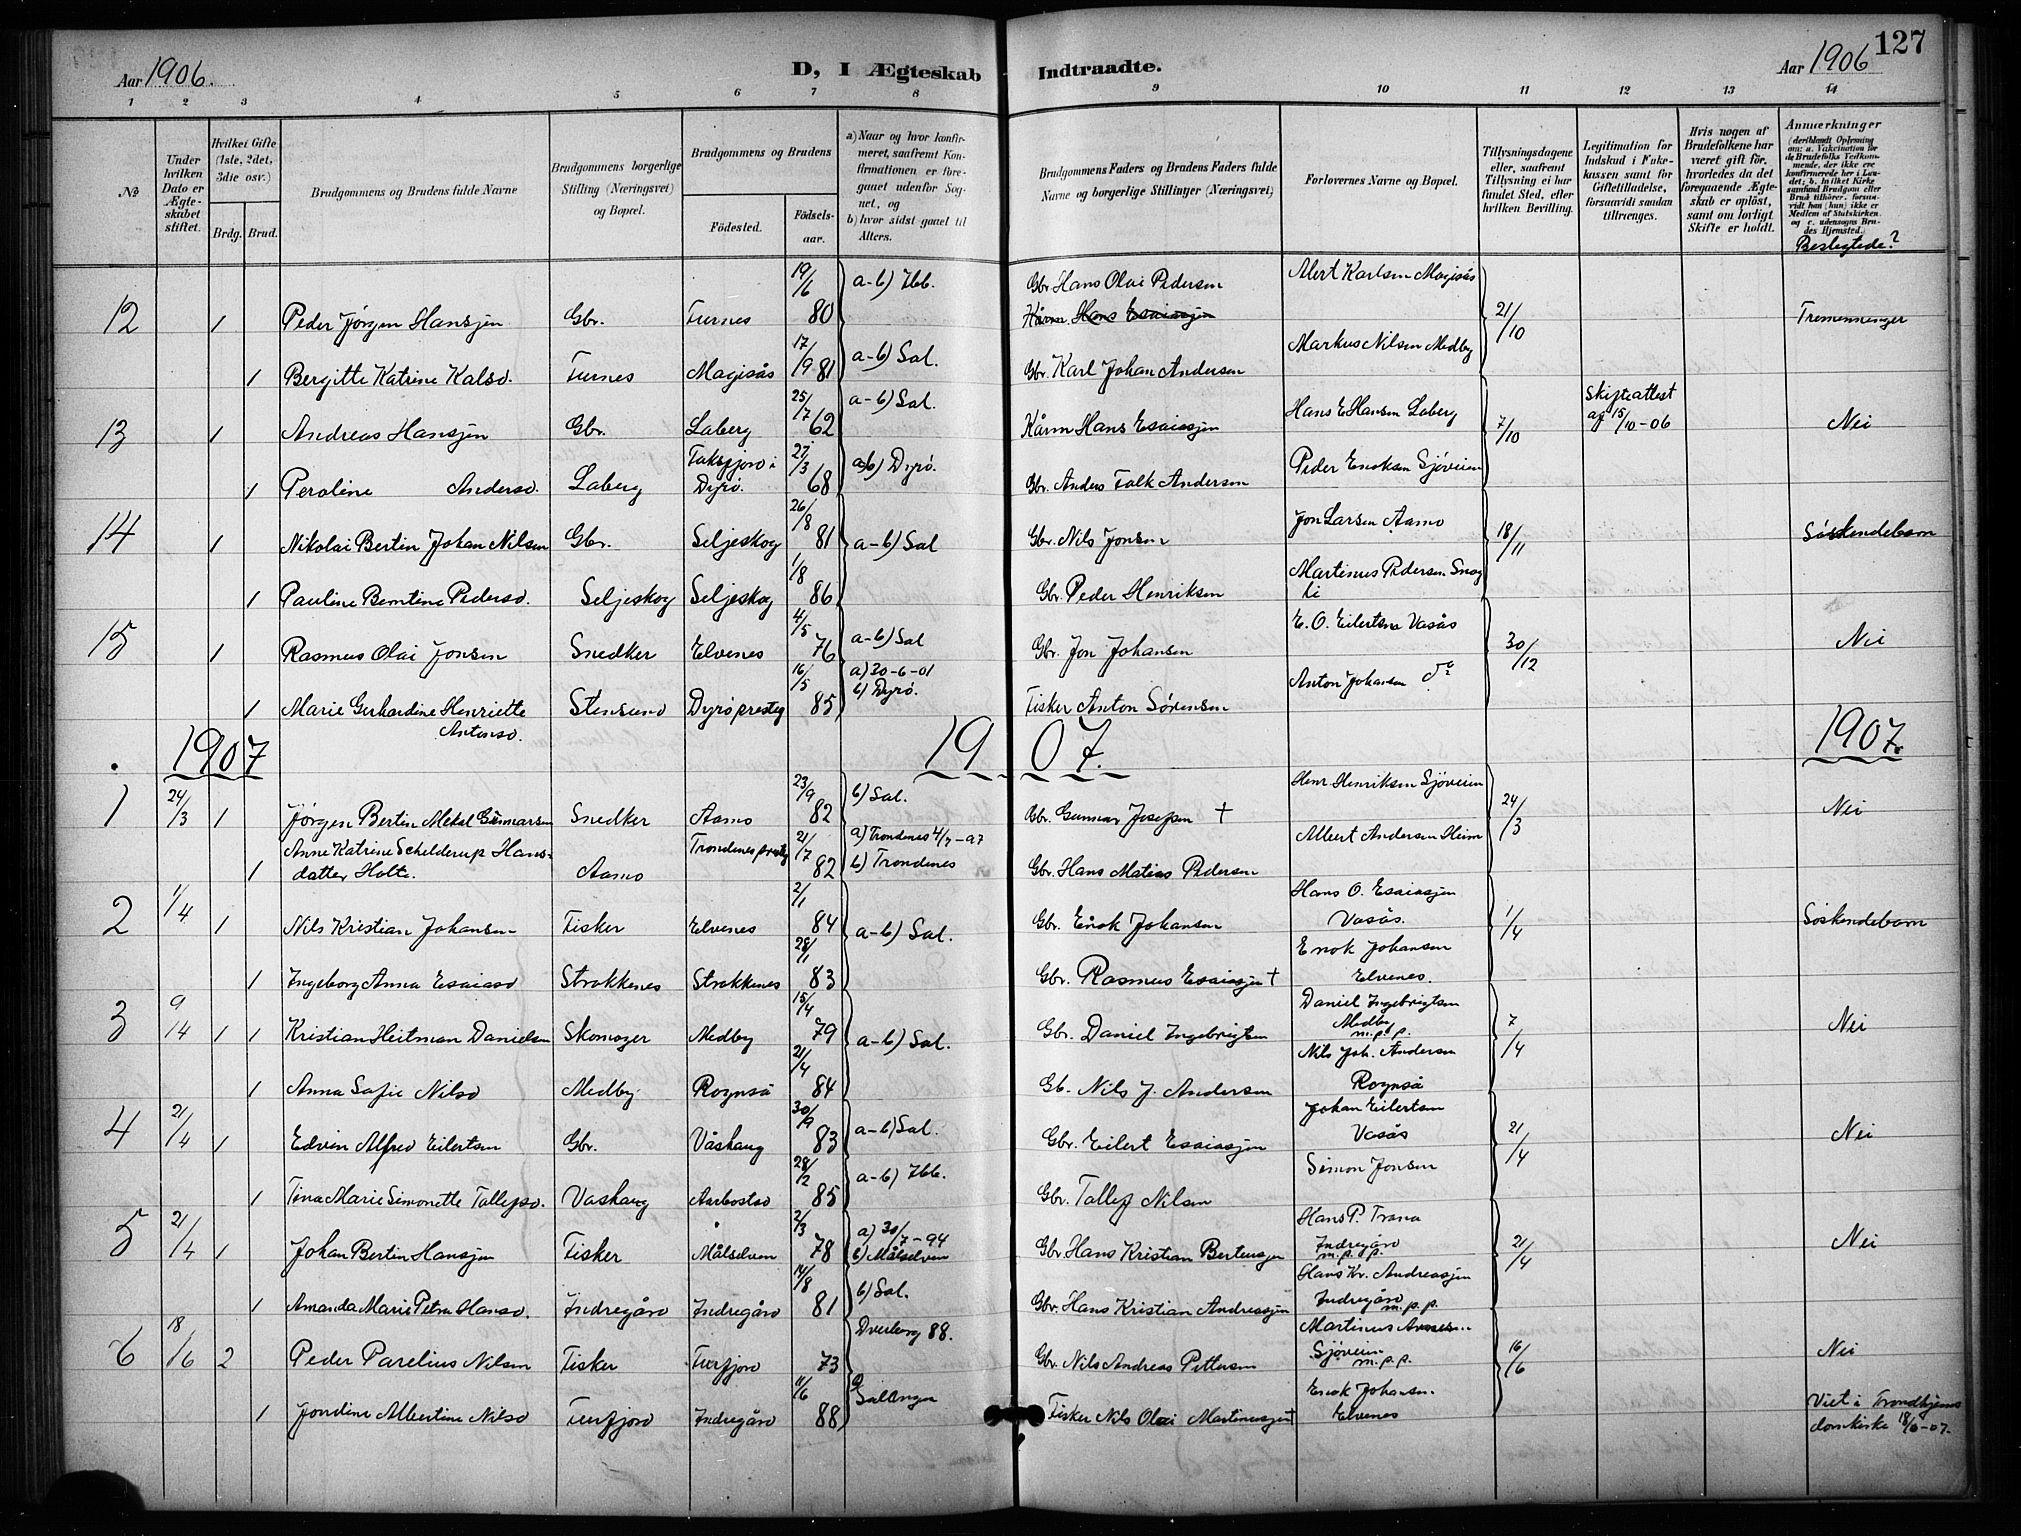 127
Aar 1906. D, I Ægteskab Indtraadte. Aar 1906
1 2 3 4 5 6 7 8 9 10 11 12 13 14
No
Under hvilken Dato er Ægteskabet stiftet.
Hvilket Gifte (1ste, 2det, 3die osv.)
Brdg. Brud.
Brudgommens og Brudens fulde Navne
Brudgommens borgerlige Stilling (Næringsvei) og Bopæl.
Brudgommens og Brudens
Fødested. Fødselsaar.
a) Naar og hvor konfirmeret, saafremt Konfirmationen er foregaaet udenfor Sognet, og
b) hvor sidst gaaet til Alters.
Brudgommens Faders og Brudens Faders fulde Navne og borgerlige Stillinger (Næringsvei)
Forlovernes Navne og Bopæl.
Tillysningsdagene eller, saafremt Tillysning ei har fundet Sted, efter hvilken Bevilling.
Legitimation for Indskud i Enkekassen samt for Giftetilladelse, forsaavidt saadan tiltrænges.
Hvis nogen af Brudefolkene har været gift før, hvorledes da det foregaaende Ægteskab er opløst, samt om lovligt Skifte er holdt.
Anmærkninger
Beslegtede?
12 1 Peder Jørgen Hansjen Gbr. Furnes 19/6 80 a-b) Ibb. Gbr. Hans Olai Pedersen Alert Karlsen Magisås 21/10 Tremenninger
Kårm. Hans Esaiasjen
1 Bergitte Katrine Kalsd. Furnes Magisås 17/9 81 a-b) Sal. Gbr. Karl Johan Andersen Markus Nilsen Medby
13 1 Andreas Hansjen Gbr. Laberg 25/7 62 a-b) Sal. Kårm Hans Esaiasjen Hans E Hansen Laberg 7/10 Skifteattest af 15/10-06 Nei
1 Peroline Andersd. Laberg Faksfjord i Dyrø. 27/3 68 a-b) Dyrø. Gbr. Anders Falk Andersen Peder Enoksen Sjøveien
14 1 Nikolai Bertin Johan Nilsen Gbr. Seljeskog 26/8 81 a-b) Sal Gbr. Nils Jonsen Jon Larsen Aamo 18/11 Søskendebarn
1 Pauline Berntine Pedersd. Seljeskog Seljeskog 1/8 86 Gbr. Peder Henriksen Martinus Pedersen Snogli
15 1 Rasmus Olai Jonsen Snedker Elvenes 4/5 76 a-b) Sal Gbr. Jon Johansen E. O. Eilertsen Vasås 30/12 Nei
1 Marie Gerhardine Henriette Antonsd. Stensund Dyrø prestg 16/5 85 a) 30-6-01 b) Dyrø. Fisker Anton Sørensen Anton Johansen do
1907 1907. 1907.
1 24/3 1 Jørgen Bertin Mekal Gunnarsen Snedker Aamo 23/9 82 b) Sal. Gbr. Gunnar Josefsen † Henr Henriksen Sjøveien 24/3 Nei
1 Anne Katrine Schelderup Hansdatter Holte. Aamo Trondenes prestg 21/7 82 a) Trondenes 4/7-97 b) Trondenes Gbr. Hans Matias Pedersen Albert Andersen Heim
2 1/4 1 Nils Kristian Johansen Fisker Elvenes 2/1 84 a-b) Sal. Gbr. Enok Johansen Hans O. Esaiasjen Vasås. 1/4 Søskendebarn
1 Ingeborg Anna Esaiasd Strokkenes Strokkenes 28/1 83 Gbr. Rasmus Esaiasjen † Enok Johansen Elvenes.
3 9/14 1 1 Kristian Heitman Danielsen Skomager Medby 15/4 79 a-b) Sal. Gbr. Daniel Ingebrigtsen Daniel Ingebrigtsen Medby m.p.p. 7/4 Nei
1 Anna Sofie Nilsd Medby Rognså 21/4 84 Gb. Nils J. Andersen Nils Joh. Andersen Rognså
4 21/4 1 Edvin Alfred Eilertsen Gbr. Våshaug 30/9 83 a-b) Sal. Gbr. Eilert Esaiasjen Johan Eilertsen Vasås 21/4 Nei
1 Tina Marie Simonette Tollefsd. Vashaug Aarbostad 28/2 85 a-b) Ibb. Gbr. Tollef Nilsen Simon Jonsen
5 21/4 1 Johan Bertin Hansjen Fisker Målselven 2/3 78 a) 30/7-94 b) Målselven Gbr. Hans Kristian Bertensjen Hans P. Trana Indregård m.p.p. 21/4 Nei
1 Amanda Marie Petra Hansd. Indregård Indregård 14/8 81 b) Sal. Gbr. Hans Kristian Andreassjen Hans Kr. Andreasjen Indregård m.p.p.
6 18/6 2 Peder Parelius Nilsen Fisker Furfjord 73 Dverberg 88. Gbr. Nils Andreas Pettersen Martinus Sjøveien m.p.p. 16/6 Nei
1 Jondine Albertine Nilsd Furfjord Indregård 11/6 88 Salangen Fisker Nils Olai Martinussjen † Enok Johansen. Elvenes Viet i Trondhjems domkirke 18/6-07.